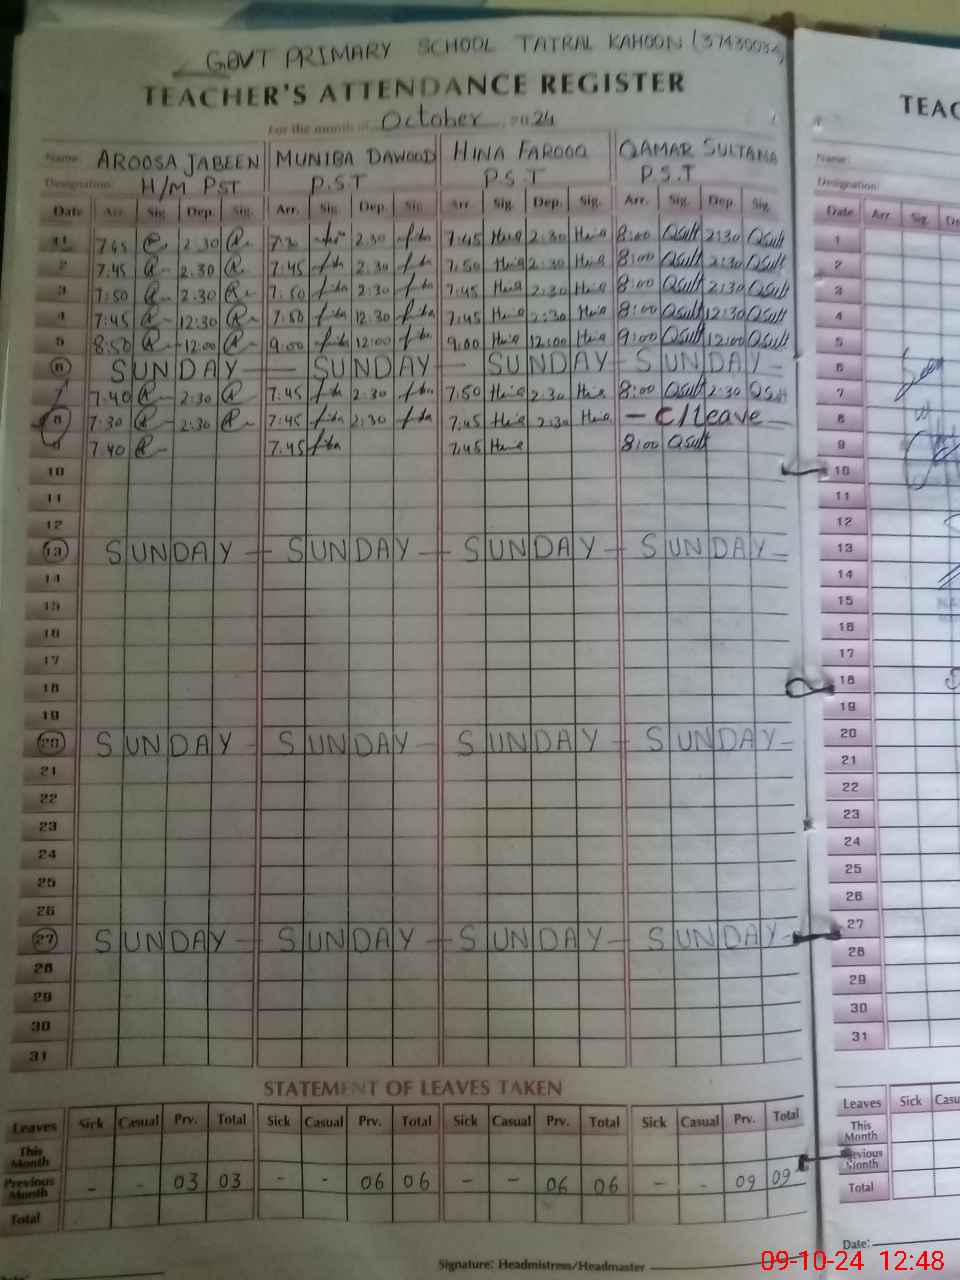 GOVT PRIMARY SCHOOL TATRAL KAHOON (37430034
TEACHER'S ATTENDANCE REGISTER
For the month of October 2024
Name: AROOSA JABEEN MUNIBA DAWOOD HINA FAROOQ QAMAR SULTANA
Designation: H/M PST P.S.T P.S.T P.S.T
Date Arr. Sig. Dep. Sig. Arr. Sig. Dep. Sig. Arr. Sig. Dep. Sig. Arr. Sig. Dep. Sig.
1 7:45 2:30 7:30 2:30 7:45 Hina 2:30 Hina 8:00 QSult 2:30 QSult
2 7:45 2:30 7:45 2:30 7:50 Hina 2:30 Hina 8:00 QSult 2:30 QSult
3 7:50 2:30 7:50 2:30 7:45 Hina 2:30 Hina 8:00 QSult 2:30 QSult
4 7:45 12:30 7:50 12:30 7:45 Hina 2:30 Hina 8:00 QSult 12:30 QSult
5 8:50 12:00 9:00 12:00 9:00 Hina 12:00 Hina 9:00 QSult 12:00 QSult
6 SUNDAY SUNDAY SUNDAY SUNDAY
7 7:40 2:30 7:45 2:30 7:50 Hina 2:30 Hina 8:00 QSult 2:30 QSult
8 7:30 2:30 7:45 2:30 7:45 Hina 2:30 Hina - C/Leave
9 7:40 7:45 7:45 Hina 8:00 QSult
10
11
12
13 SUNDAY SUNDAY SUNDAY SUNDAY
14
15
16
17
18
19
20 SUNDAY SUNDAY SUNDAY SUNDAY
21
22
23
24
25
26
27 SUNDAY SUNDAY SUNDAY SUNDAY
28
29
30
31
STATEMENT OF LEAVES TAKEN
Leaves Sick Casual Prv. Total Sick Casual Prv. Total Sick Casual Prv. Total Sick Casual Prv. Total
This Month
Previous Month - - 03 03 - - 06 06 - - 06 06 - - 09 09
Total
Signature: Headmistress/Headmaster
TEAC
Name:
Designation:
Date Arr. Sig. De
1
2
3
4
5
6
7
8
9
10
11
12
13
14
15
16
17
18
19
20
21
22
23
24
25
26
27
28
29
30
31
Leaves Sick Casu
This Month
Previous Month
Total
Date:
09-10-24 12:48